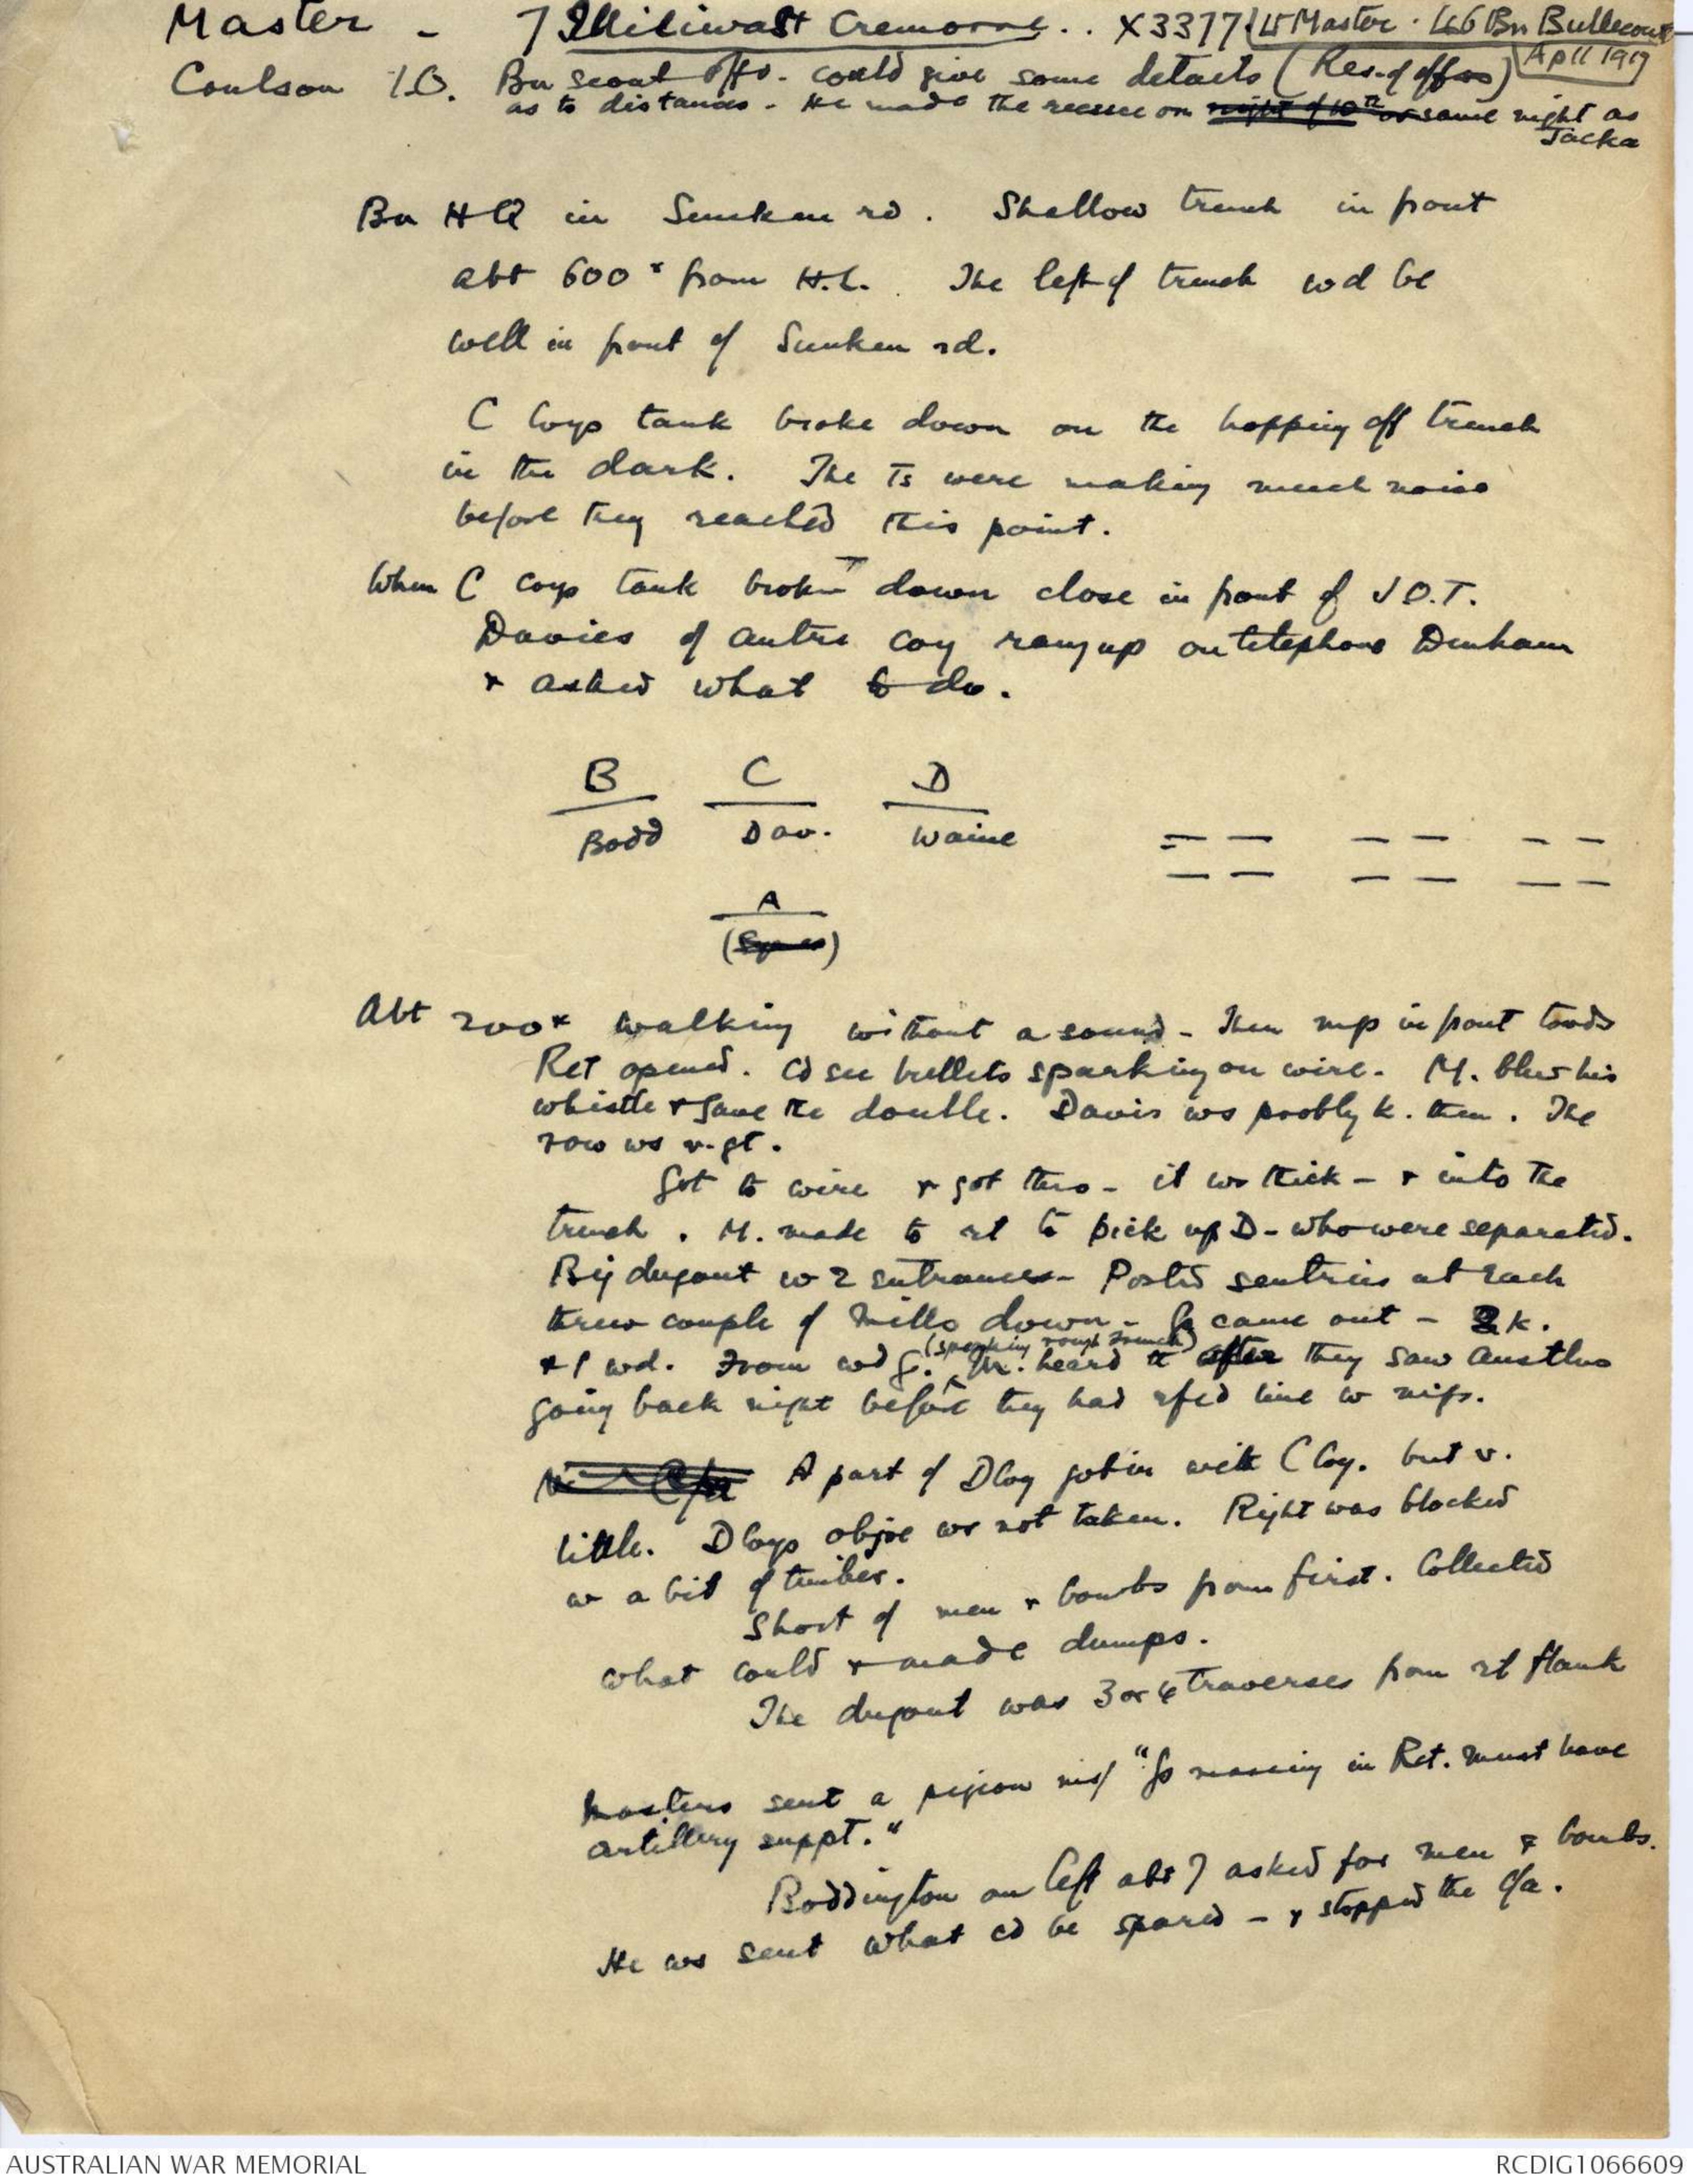 Master - 7 Illiliwa St Cremorne. . X3377. Lt Master . 46 Bn Bullecourt
April 1917
Coulson I.O. Bn scout offr. could give some details (Res. of offrs)
as to distances - He made the reccee on night of 10th or same night as
Jacka
Bn HQ in Sunken rd. Shallow trench in front
abt 600x from H.L. The left of trench wd be
well in front of Sunken rd.
C Coys tank broke down on the hopping off trench
in the dark. The Ts were making much noise
before they reached this point.
When C coys tank broke down close in front of J.O.T.
Davies of centre coy rang up on telephone Denham
& asked what to do.
B C D
Bodd Dav. Waine
A
( )
Abt 200x walking without a sound - Then m.g. in front towds
Ret opened. Cd see bullets sparking on wire. M. blew his
whistle & gave the double. Davis ws probbly k. then. The
row ws v. gt.
Got to wire & got thro - it ws thick - & into the
trench. M. made to rt to pick up D - who were separated.
Big dugout w 2 entrances - Posted sentries at each
threw couple of Mills down - Gs came out - 2 k.
& 1 wd. From wd G. (speaking rough French) M. heard tt after they saw Austlns
going back night before they had rfcd line w m.gs.
A part of D Coy got in with C Coy. but v.
little. D Coys objve ws not taken. Right was blocked
w a bit of timber.
Short of men & bombs from first. Collected
what could & made dumps.
The dugout was 3 or 4 traverses from rt flank
Masters sent a pigeon msg "Gs massing in Ret. Must have
artillery suppt."
Boddington on left abt 7 asked for men & bombs.
He ws sent what cd be spared - & stopped the c/a.
AUSTRALIAN WAR MEMORIAL
RCDIG1066609